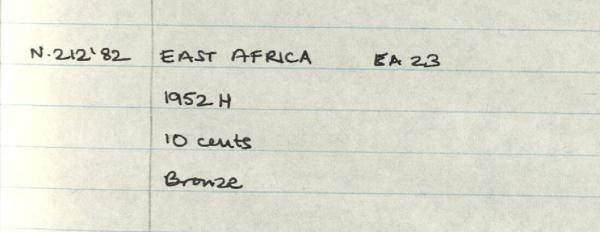 N.212'82 EAST AFRICA EA 23
1952 H
10 cents
Bronze